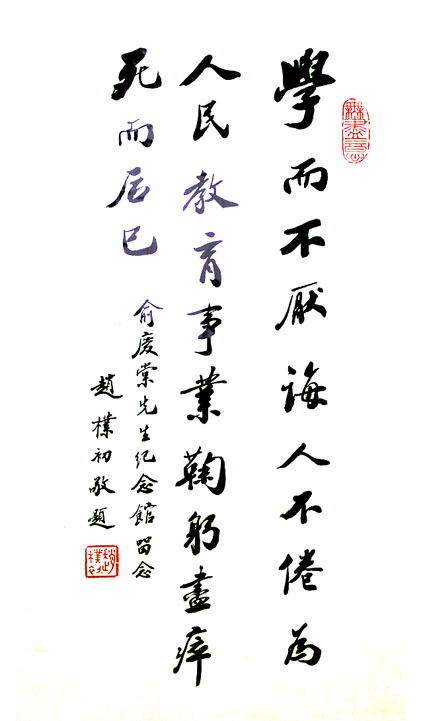 學而不厭誨人不倦為
人民教育事業鞠躬盡瘁
死而后已
俞庆棠先生纪念館留念
趙樸初敬題